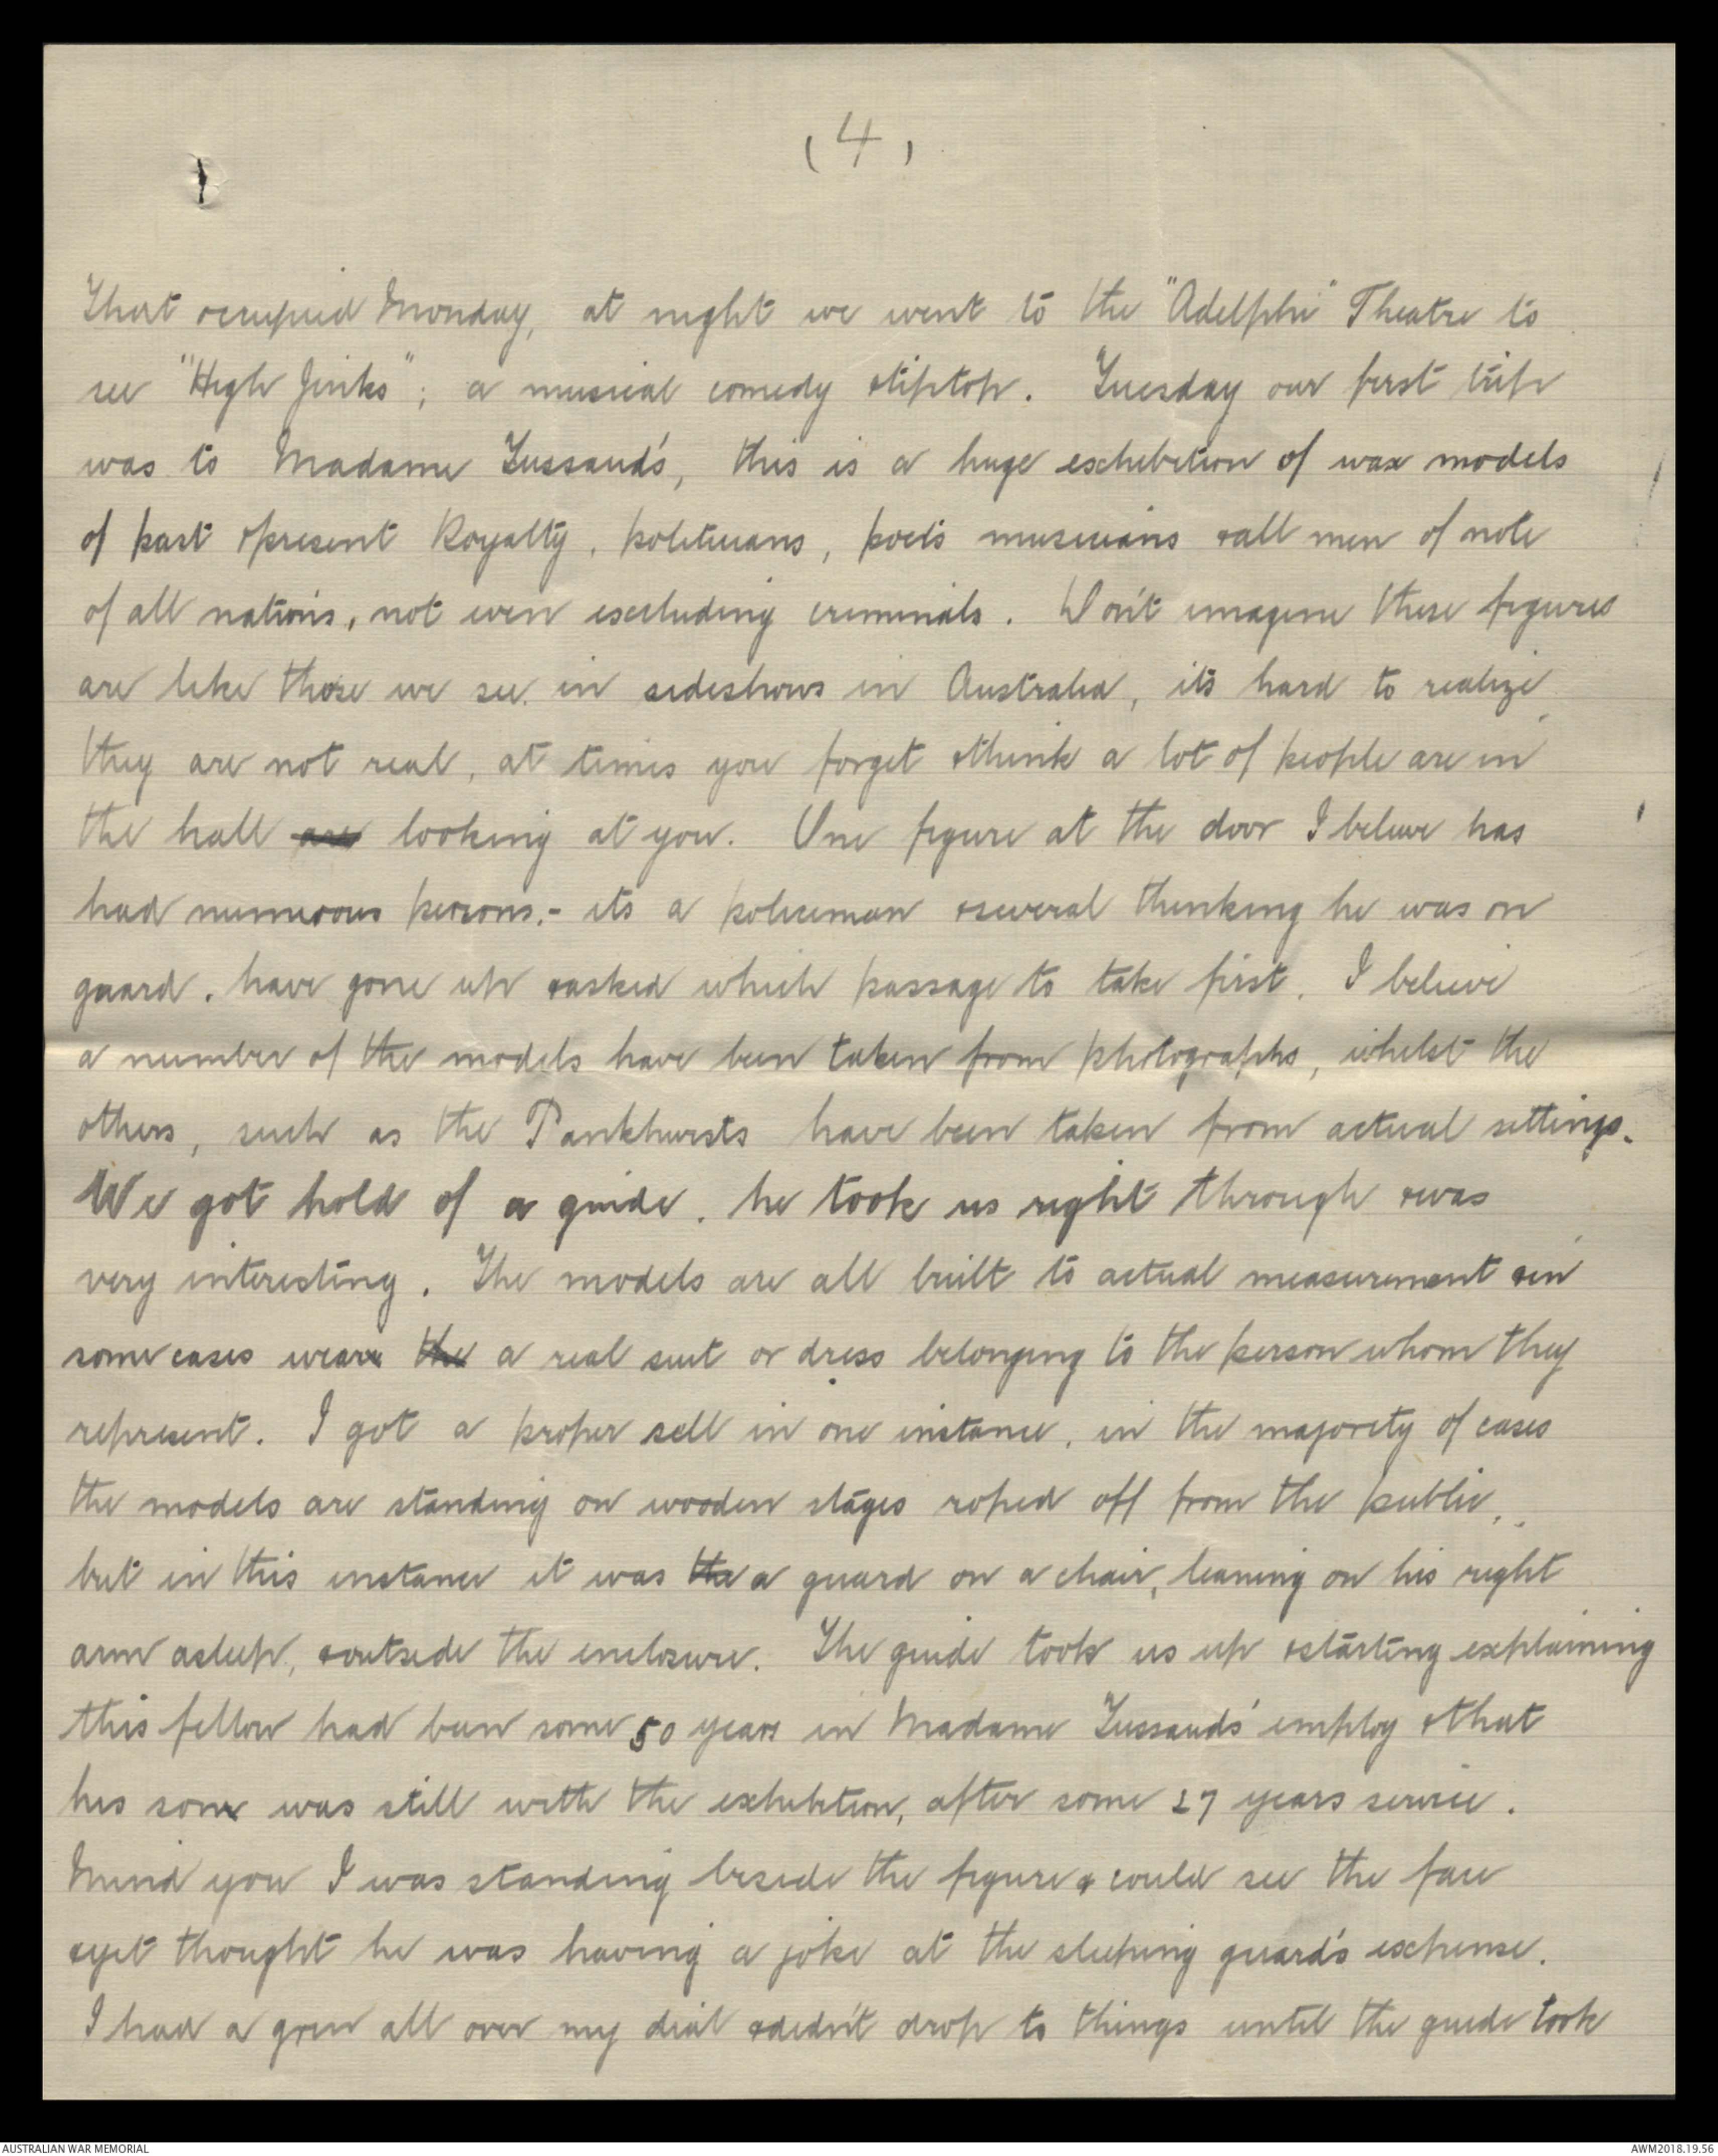 (4)
That occupied Monday, at night we went to the "Adelphi" Theatre to
see "High Jinks"; a musical comedy & tiptop. Tuesday our first trip
was to Madame Tussaud's, this is a huge exhibition of wax models
of past & present Royalty, politicians, poets musicians & all men of note
of all nations, not even excluding criminals. Don't imagine these figures
are like those we see in sideshows in Australia, it's hard to realize
they are not real, at times you forget & think a lot of people are in
the hall are looking at you. One figure at the door I believe has
had numerous persons,- its a policeman & several thinking he was on
guard, have gone up & asked which passage to take first. I believe
a number of the models have been taken from photographs, whilst the
others, such as the Pankhursts have been taken from actual sittings.
We got hold of a guide, he took us right through & was
very interesting. The models are all built to actual measurement & in
some cases wear the a real suit or dress belonging to the person whom they
represent. I got a proper sell in one instance, in the majority of cases
the models are standing on wooden stages roped off from the public,
but in this instance it was the a guard on a chair, leaning on his right
arm asleep, & outside the enclosure. The guide took us up & starting explaining
this fellow had been some 50 years in Madame Tussauds' employ & that
his son was still with the exhibition, after some 27 years service.
Mind you I was standing beside the figure & could see the face
& yet thought he was having a joke at the sleeping guard's expense.
I had a grin all over my dial & didn't drop to things until the guide took
AUSTRALIAN WAR MEMORIAL
AWM2018.19.56